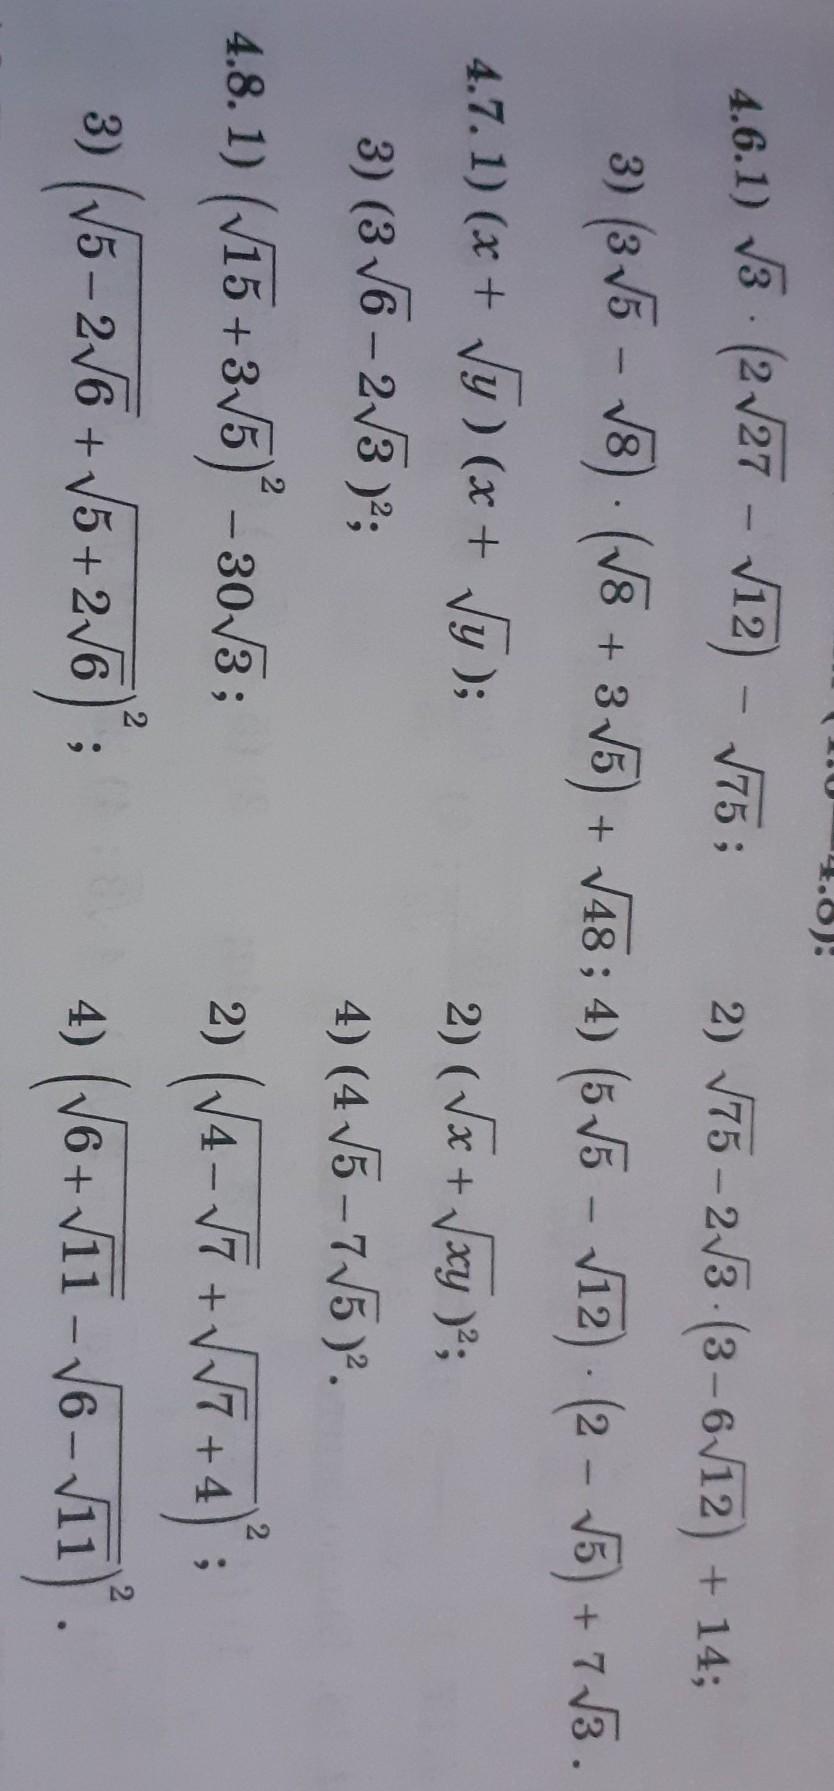 4.8):
4.6.1) √3 · (2√27 − √12) − √75; 2) √75 − 2√3 · (3 − 6√12) + 14;
3) (3√5 − √8) · (√8 + 3√5) + √48; 4) (5√5 − √12) · (2 − √5) + 7√3.
4.7. 1) (x + √y) (x + √y); 2) (√x + √(xy))²;
3) (3√6 − 2√3)²; 4) (4√5 − 7√5)².
4.8. 1) (√15 + 3√5)² − 30√3; 2) (√(4 − √7) + √(√7 + 4))²;
3) (√(5 − 2√6) + √(5 + 2√6))²; 4) (√(6 + √11) − √(6 − √11))².